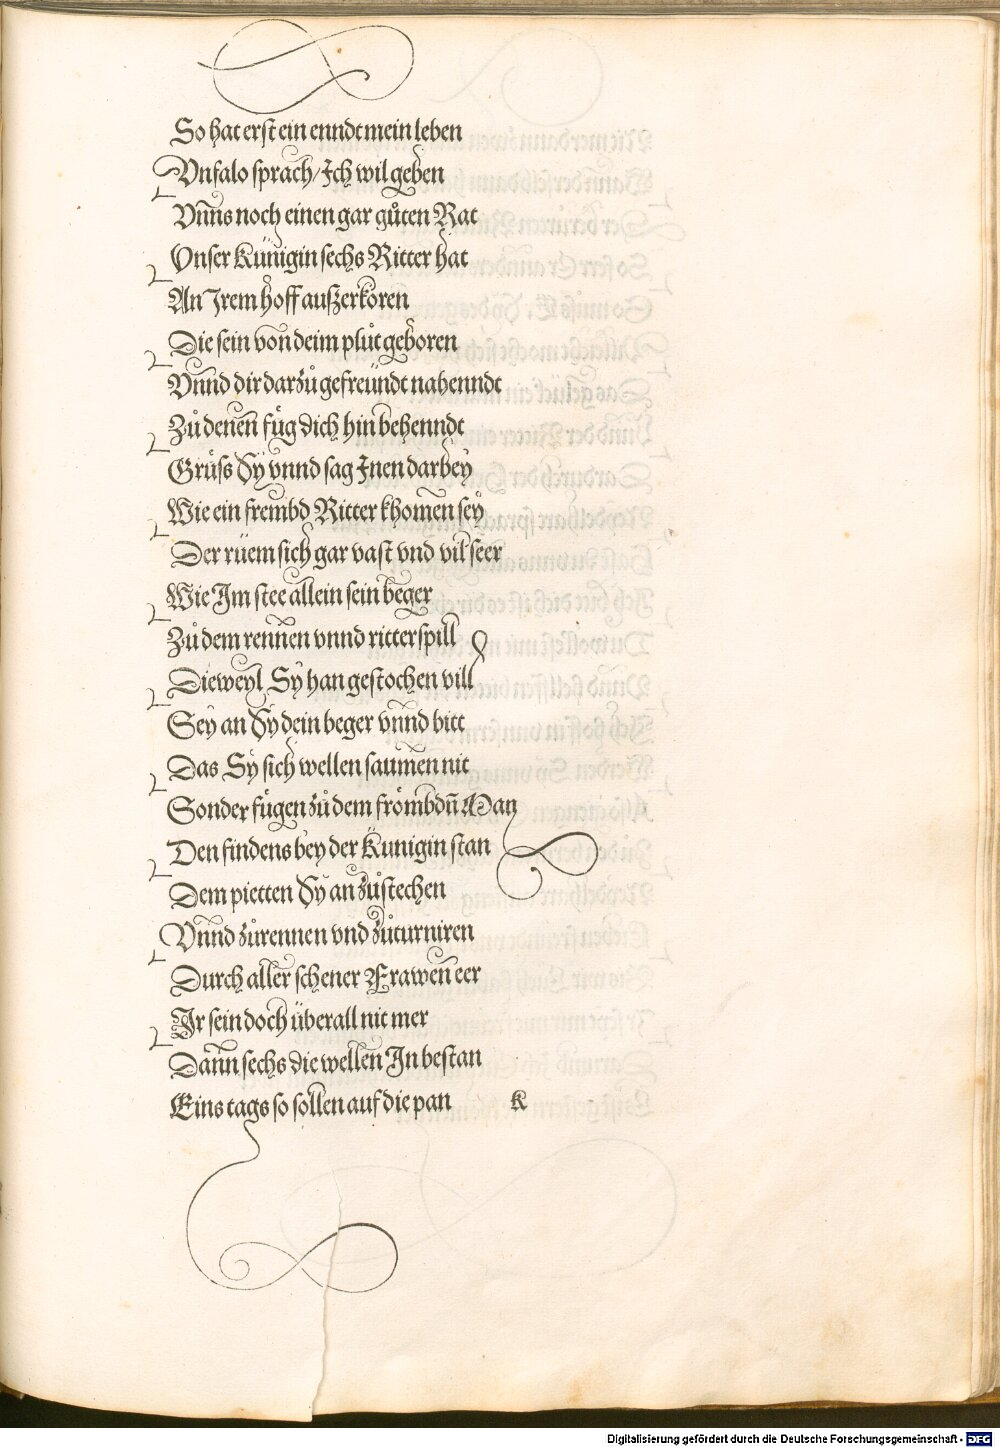 So hat erst ein enndt mein leben
Vnfalo sprach / Ich wil geben
Vnns noch einen gar gůten Rat
Vnser Künigin sechs Ritter hat
An Irem hoff außerkoren
Die sein von deim plůt geboren
Vnnd dir darzů gefreündt nahenndt
Zů denen füg dich hin behenndt
Grüss Sy vnnd sag Inen darbey
Wie ein frembd Ritter khomen sey
Der rüem sich gar vast vnd vil seer
Wie Im stee allein sein beger
Zů dem rennen vnnd ritterspill
Dieweyl Sy han gestochen vill
Sey an Sy dein beger vnnd bitt
Das Sy sich wellen saumen nit
Sonder fügen zů dem frömbdñ Man
Den findens bey der Kunigin stan
Dem pietten Sy an zůstechen
Vnnd zůrennen vnd zůturniren
Durch aller schener Frawen eer
Ir sein doch überall nit mer
Dann sechs die wellen In bestan
Eins tags so sollen auf die pan K
Digitalisierung gefördert durch die Deutsche Forschungsgemeinschaft - DFG